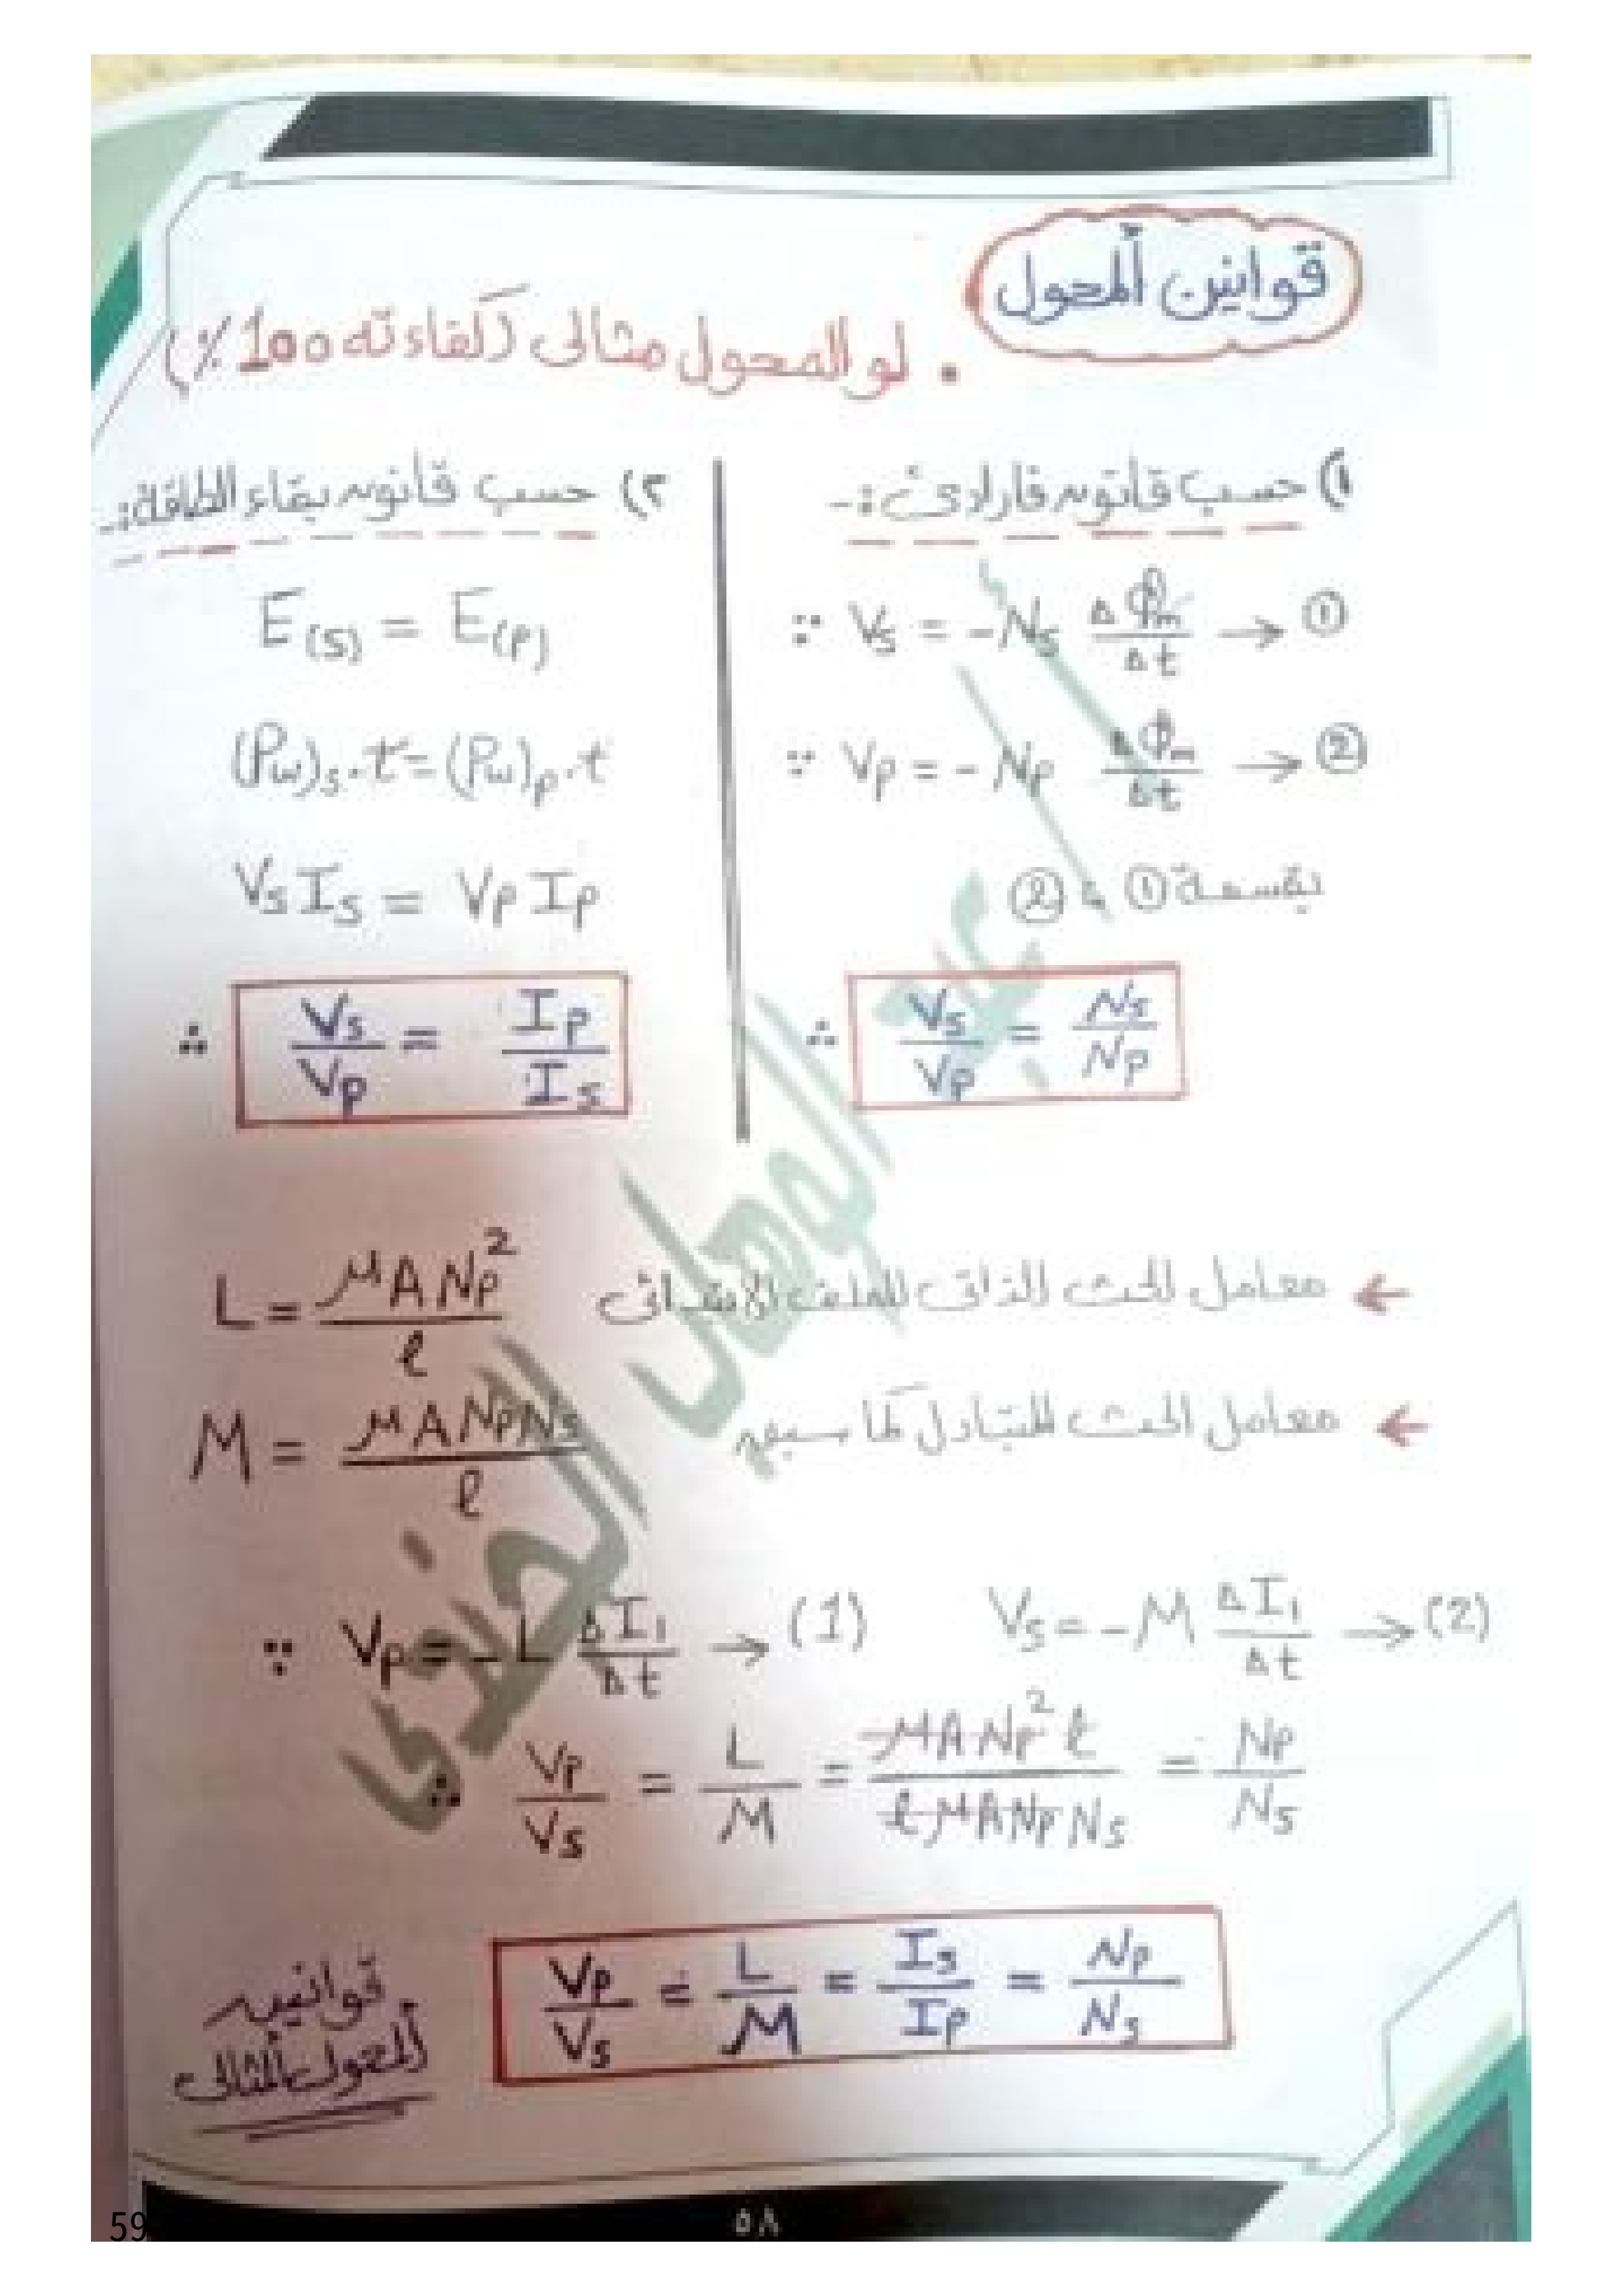 قوانين المحول
• لو المحول مثالى (كفاءته 100%)
1) حسب قانون فارادى :-
∵ Vs = -Ns ΔΦm/Δt → ①
∵ Vp = -Np ΔΦm/Δt → ②
بقسمة ① ، ②
∴ Vs/Vp = Ns/Np
٢) حسب قانون بقاء الطاقة:-
E(s) = E(p)
(Pw)s . t = (Pw)p . t
Vs Is = Vp Ip
∴ Vs/Vp = Ip/Is
← معامل الحث الذاتى للملف الابتدائى L = μANp²/ℓ
← معامل الحث المتبادل لما سبق M = μANpNs/ℓ
∵ Vp = -L ΔI₁/Δt → (1) Vs = -M ΔI₁/Δt → (2)
∴ Vp/Vs = L/M = μANp²ℓ/ℓμANpNs = Np/Ns
Vp/Vs = L/M = Is/Ip = Np/Ns
قوانين
المحول المثالى
٥٨
59